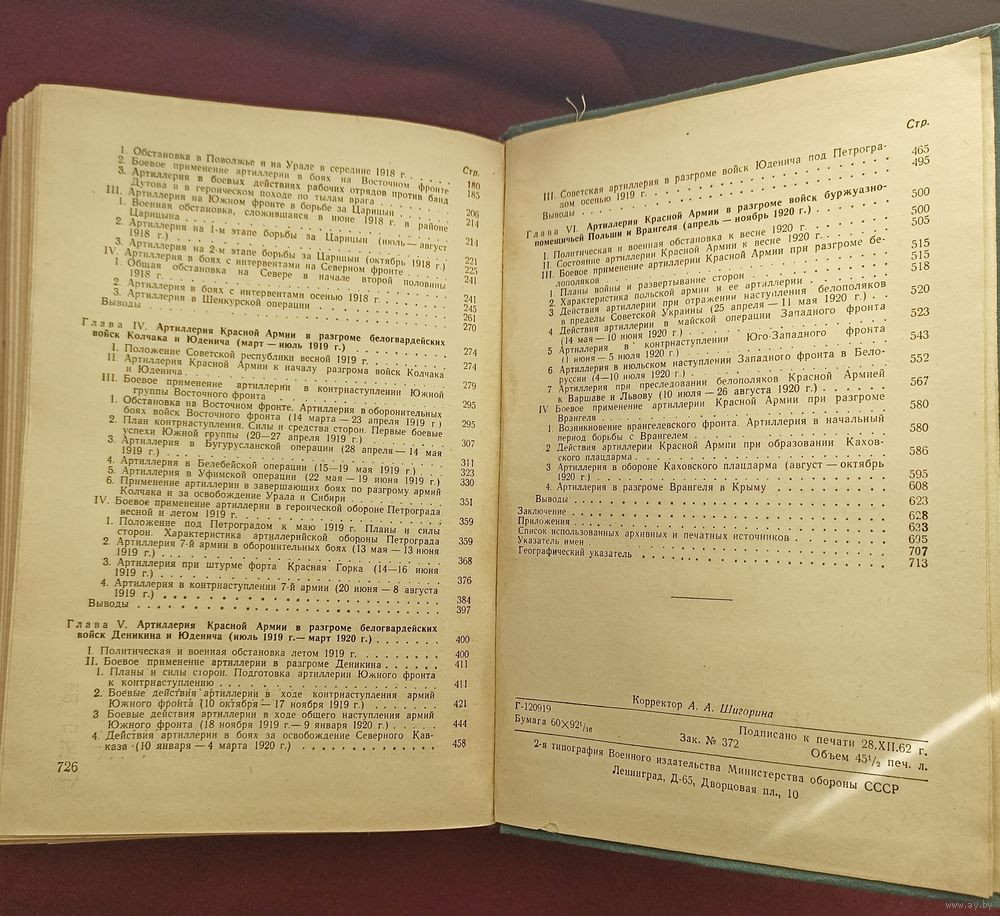 Стр.
1. Обстановка в Поволжье и на Урале в середине 1918 г. . . . . 180
2. Боевое применение артиллерии в боях на Восточном фронте 185
3. Артиллерия в боевых действиях рабочих отрядов против банд
Дутова и в героическом походе по тылам врага . . . . . . . 206
III. Артиллерия на Южном фронте в борьбе за Царицын . . . . 214
1. Военная обстановка, сложившаяся в июне 1918 г. в районе
Царицына . . . . . . . . 214
2. Артиллерия на 1-м этапе борьбы за Царицын (июль—август
1918 г.) . . . . . . . . 221
3. Артиллерия на 2-м этапе борьбы за Царицын (октябрь 1918 г.) 225
IV. Артиллерия в боях с интервентами на Северном фронте . . . . 241
1. Общая обстановка на Севере в начале второй половины
1918 г. . . . . . . . . 241
2. Артиллерия в боях с интервентами осенью 1918 г. . . . . 245
3. Артиллерия в Шенкурской операции . . . . . . . 261
Выводы . . . . . . . . 270
Глава IV. Артиллерия Красной Армии в разгроме белогвардейских
войск Колчака и Юденича (март — июль 1919 г.) . . . . . . . 274
I. Положение Советской республики весной 1919 г. . . . . . 274
II. Артиллерия Красной Армии к началу разгрома войск Колчака
и Юденича . . . . . . . . 279
III. Боевое применение артиллерии в контрнаступлении Южной
группы Восточного фронта . . . . . . . . 295
1. Обстановка на Восточном фронте. Артиллерия в оборонительных
боях войск Восточного фронта (14 марта — 23 апреля 1919 г.) 295
2. План контрнаступления. Силы и средства сторон. Первые боевые
успехи Южной группы (20—27 апреля 1919 г.) . . . . . . 307
3. Артиллерия в Бугурусланской операции (28 апреля — 14 мая
1919 г.) . . . . . . . . 311
4. Артиллерия в Белебейской операции (15—19 мая 1919 г.) . . 323
5. Артиллерия в Уфимской операции (22 мая — 19 июня 1919 г.) 330
6. Применение артиллерии в завершающих боях по разгрому армий
Колчака и за освобождение Урала и Сибири . . . . . . . 351
IV. Боевое применение артиллерии в героической обороне Петрограда
весной и летом 1919 г. . . . . . . . . 359
1. Положение под Петроградом к маю 1919 г. Планы и силы
сторон. Характеристика артиллерийской обороны Петрограда 359
2. Артиллерия 7-й армии в оборонительных боях (13 мая — 13 июня
1919 г.) . . . . . . . . 368
3. Артиллерия при штурме форта Красная Горка (14—16 июня
1919 г.) . . . . . . . . 376
4. Артиллерия в контрнаступлении 7-й армии (20 июня — 8 августа
1919 г.) . . . . . . . . 384
Выводы . . . . . . . . 397
Глава V. Артиллерия Красной Армии в разгроме белогвардейских
войск Деникина и Юденича (июль 1919 г.— март 1920 г.) . . . . . 400
I. Политическая и военная обстановка летом 1919 г. . . . . . 400
II. Боевое применение артиллерии в разгроме Деникина . . . . . 411
1. Планы и силы сторон. Подготовка артиллерии Южного фронта
к контрнаступлению . . . . . . . . 411
2. Боевые действия артиллерии в ходе контрнаступления армий
Южного фронта (10 октября — 17 ноября 1919 г.) . . . . . 421
3 Боевые действия артиллерии в ходе общего наступления армий
Южного фронта (18 ноября 1919 г.— 9 января 1920 г.) . . . 444
4. Действия артиллерии в боях за освобождение Северного Кав-
каза (10 января — 4 марта 1920 г.) . . . . . . . . 458
726
Стр.
III. Советская артиллерия в разгроме войск Юденича под Петрогра-
дом осенью 1919 г. . . . . . . . . 465
Выводы . . . . . . . . 495
Глава VI. Артиллерия Красной Армии в разгроме войск буржуазно-
помещичьей Польши и Врангеля (апрель — ноябрь 1920 г.) . . . . 500
I. Политическая и военная обстановка к весне 1920 г. . . . . 500
II. Состояние артиллерии Красной Армии к весне 1920 г. . . . . 505
III. Боевое применение артиллерии Красной Армии при разгроме бе-
лополяков . . . . . . . . 515
1. Планы войны и развертывание сторон . . . . . . . 515
2. Характеристика польской армии и ее артиллерии . . . . . 518
3. Действия артиллерии при отражении наступления белополяков
в пределы Советской Украины (25 апреля — 11 мая 1920 г.) . . 520
4 Действия артиллерии в майской операции Западного фронта
(14 мая — 10 июня 1920 г.) . . . . . . . . 523
5 Артиллерия в контрнаступлении Юго-Западного фронта
(1 июня — 5 июля 1920 г.) . . . . . . . . 543
6. Артиллерия в июльском наступлении Западного фронта в Бело-
руссии (4—10 июля 1920 г.) . . . . . . . . 552
7. Артиллерия при преследовании белополяков Красной Армией
к Варшаве и Львову (10 июля — 26 августа 1920 г.) . . . . . 567
IV Боевое применение артиллерии Красной Армии при разгроме
Врангеля . . . . . . . . 580
1. Возникновение врангелевского фронта. Артиллерия в начальный
период борьбы с Врангелем . . . . . . . . 580
2 Действия артиллерии Красной Армии при образовании Кахов-
ского плацдарма . . . . . . . . 586
3 Артиллерия в обороне Каховского плацдарма (август — октябрь
1920 г.) . . . . . . . . 595
4. Артиллерия в разгроме Врангеля в Крыму . . . . . . . 608
Выводы . . . . . . . . 623
Заключение . . . . . . . . 628
Приложения . . . . . . . . 633
Список использованных архивных и печатных источников . . . . . 695
Указатель имен . . . . . . . . 707
Географический указатель . . . . . . . . 713
Корректор А. А. Шигорина
Г-120919 Подписано к печати 28.XII.62 г.
Бумага 60×92 1/16 Зак. № 372 Объем 45 1/2 печ. л.
2-я типография Военного издательства Министерства обороны СССР
Ленинград, Д-65, Дворцовая пл., 10
www.ay.by